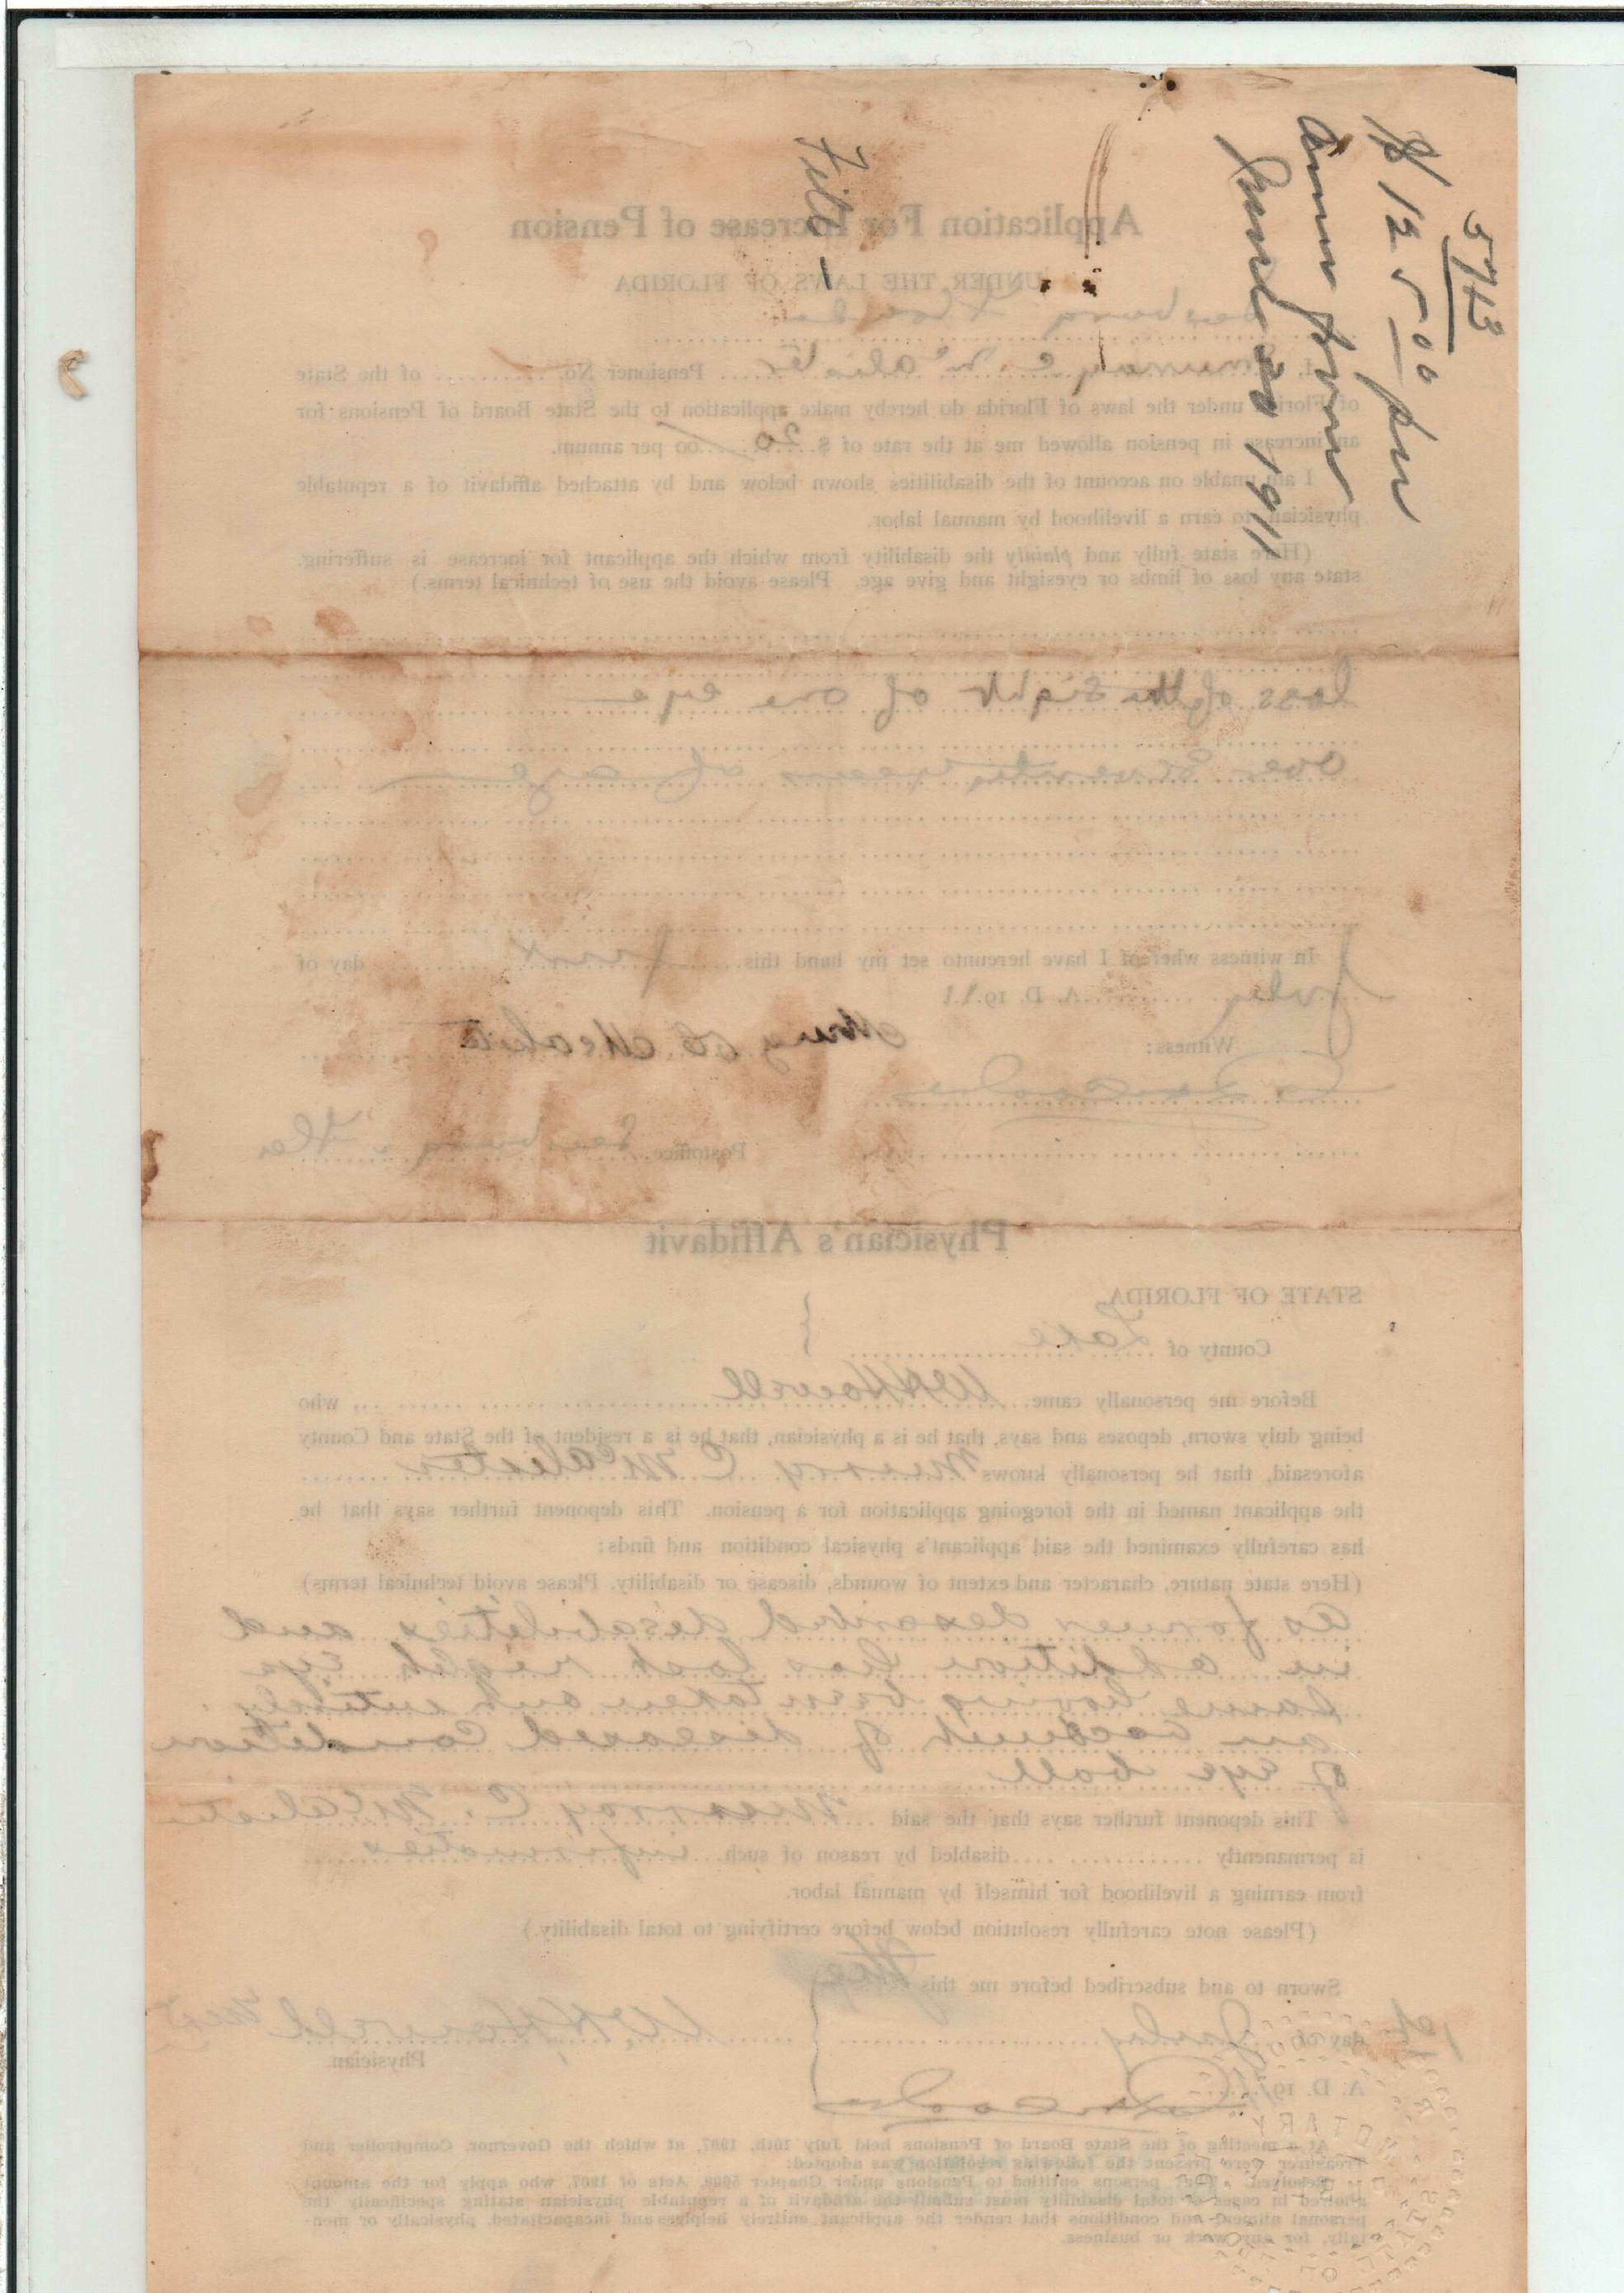 $125 00 per
annum from
June 20 1911
File -
Application For Increase of Pension
UNDER THE LAWS OF FLORIDA
Leesburg Florida
I, Murray C McAlister Pensioner No. of the State
of Florida under the laws of Florida do hereby make application to the State Board of Pensions for
an increase in pension allowed me at the rate of $ 20 /00 per annum.
I am unable on account of the disabilities shown below and by attached affidavit of a reputable
physician to earn a livelihood by manual labor.
(Here state fully and plainly the disability from which the applicant for increase is suffering,
state any loss of limbs or eyesight and give age. Please avoid the use of technical terms.)
loss of the sight of one eye
over Seventy years of age
In witness whereof I have hereunto set my hand this first day of
July A. D. 1911
Witness:
Postoffice Leesburg, Fla
Physician's Affidavit
STATE OF FLORIDA
County of Lake }
Before me personally came W H Howell who
being duly sworn, deposes and says, that he is a physician, that he is a resident of the State and County
aforesaid, that he personally knows Murray C McAlister
the applicant named in the foregoing application for a pension. This deponent further says that he
has carefully examined the said applicant's physical condition and finds:
(Here state nature, character and extent of wounds, disease or disability. Please avoid technical terms)
as former described disabilities and
in addition has lost right eye
same having been taken out entirely
on account of diseased condition
of eye ball
This deponent further says that the said Murray C. McAlister
is permanently disabled by reason of such infirmities
from earning a livelihood for himself by manual labor.
(Please note carefully resolution below before certifying to total disability.)
Sworn to and subscribed before me this the
1st day of July } W H Howell MD
Physician.
A. D. 1911
At a meeting of the State Board of Pensions held July 10th, 1907, at which the Governor, Comptroller and
Treasurer were present the following resolution was adopted:
Resolved, That persons entitled to Pensions under Chapter Acts of 1907, who apply for the amount
allowed in cases of total disability must submit the affidavit of a reputable physician stating specifically the
personal ailment and conditions that render the applicant entirely helpless and incapacitated, physically or men-
tally, for any work or business.